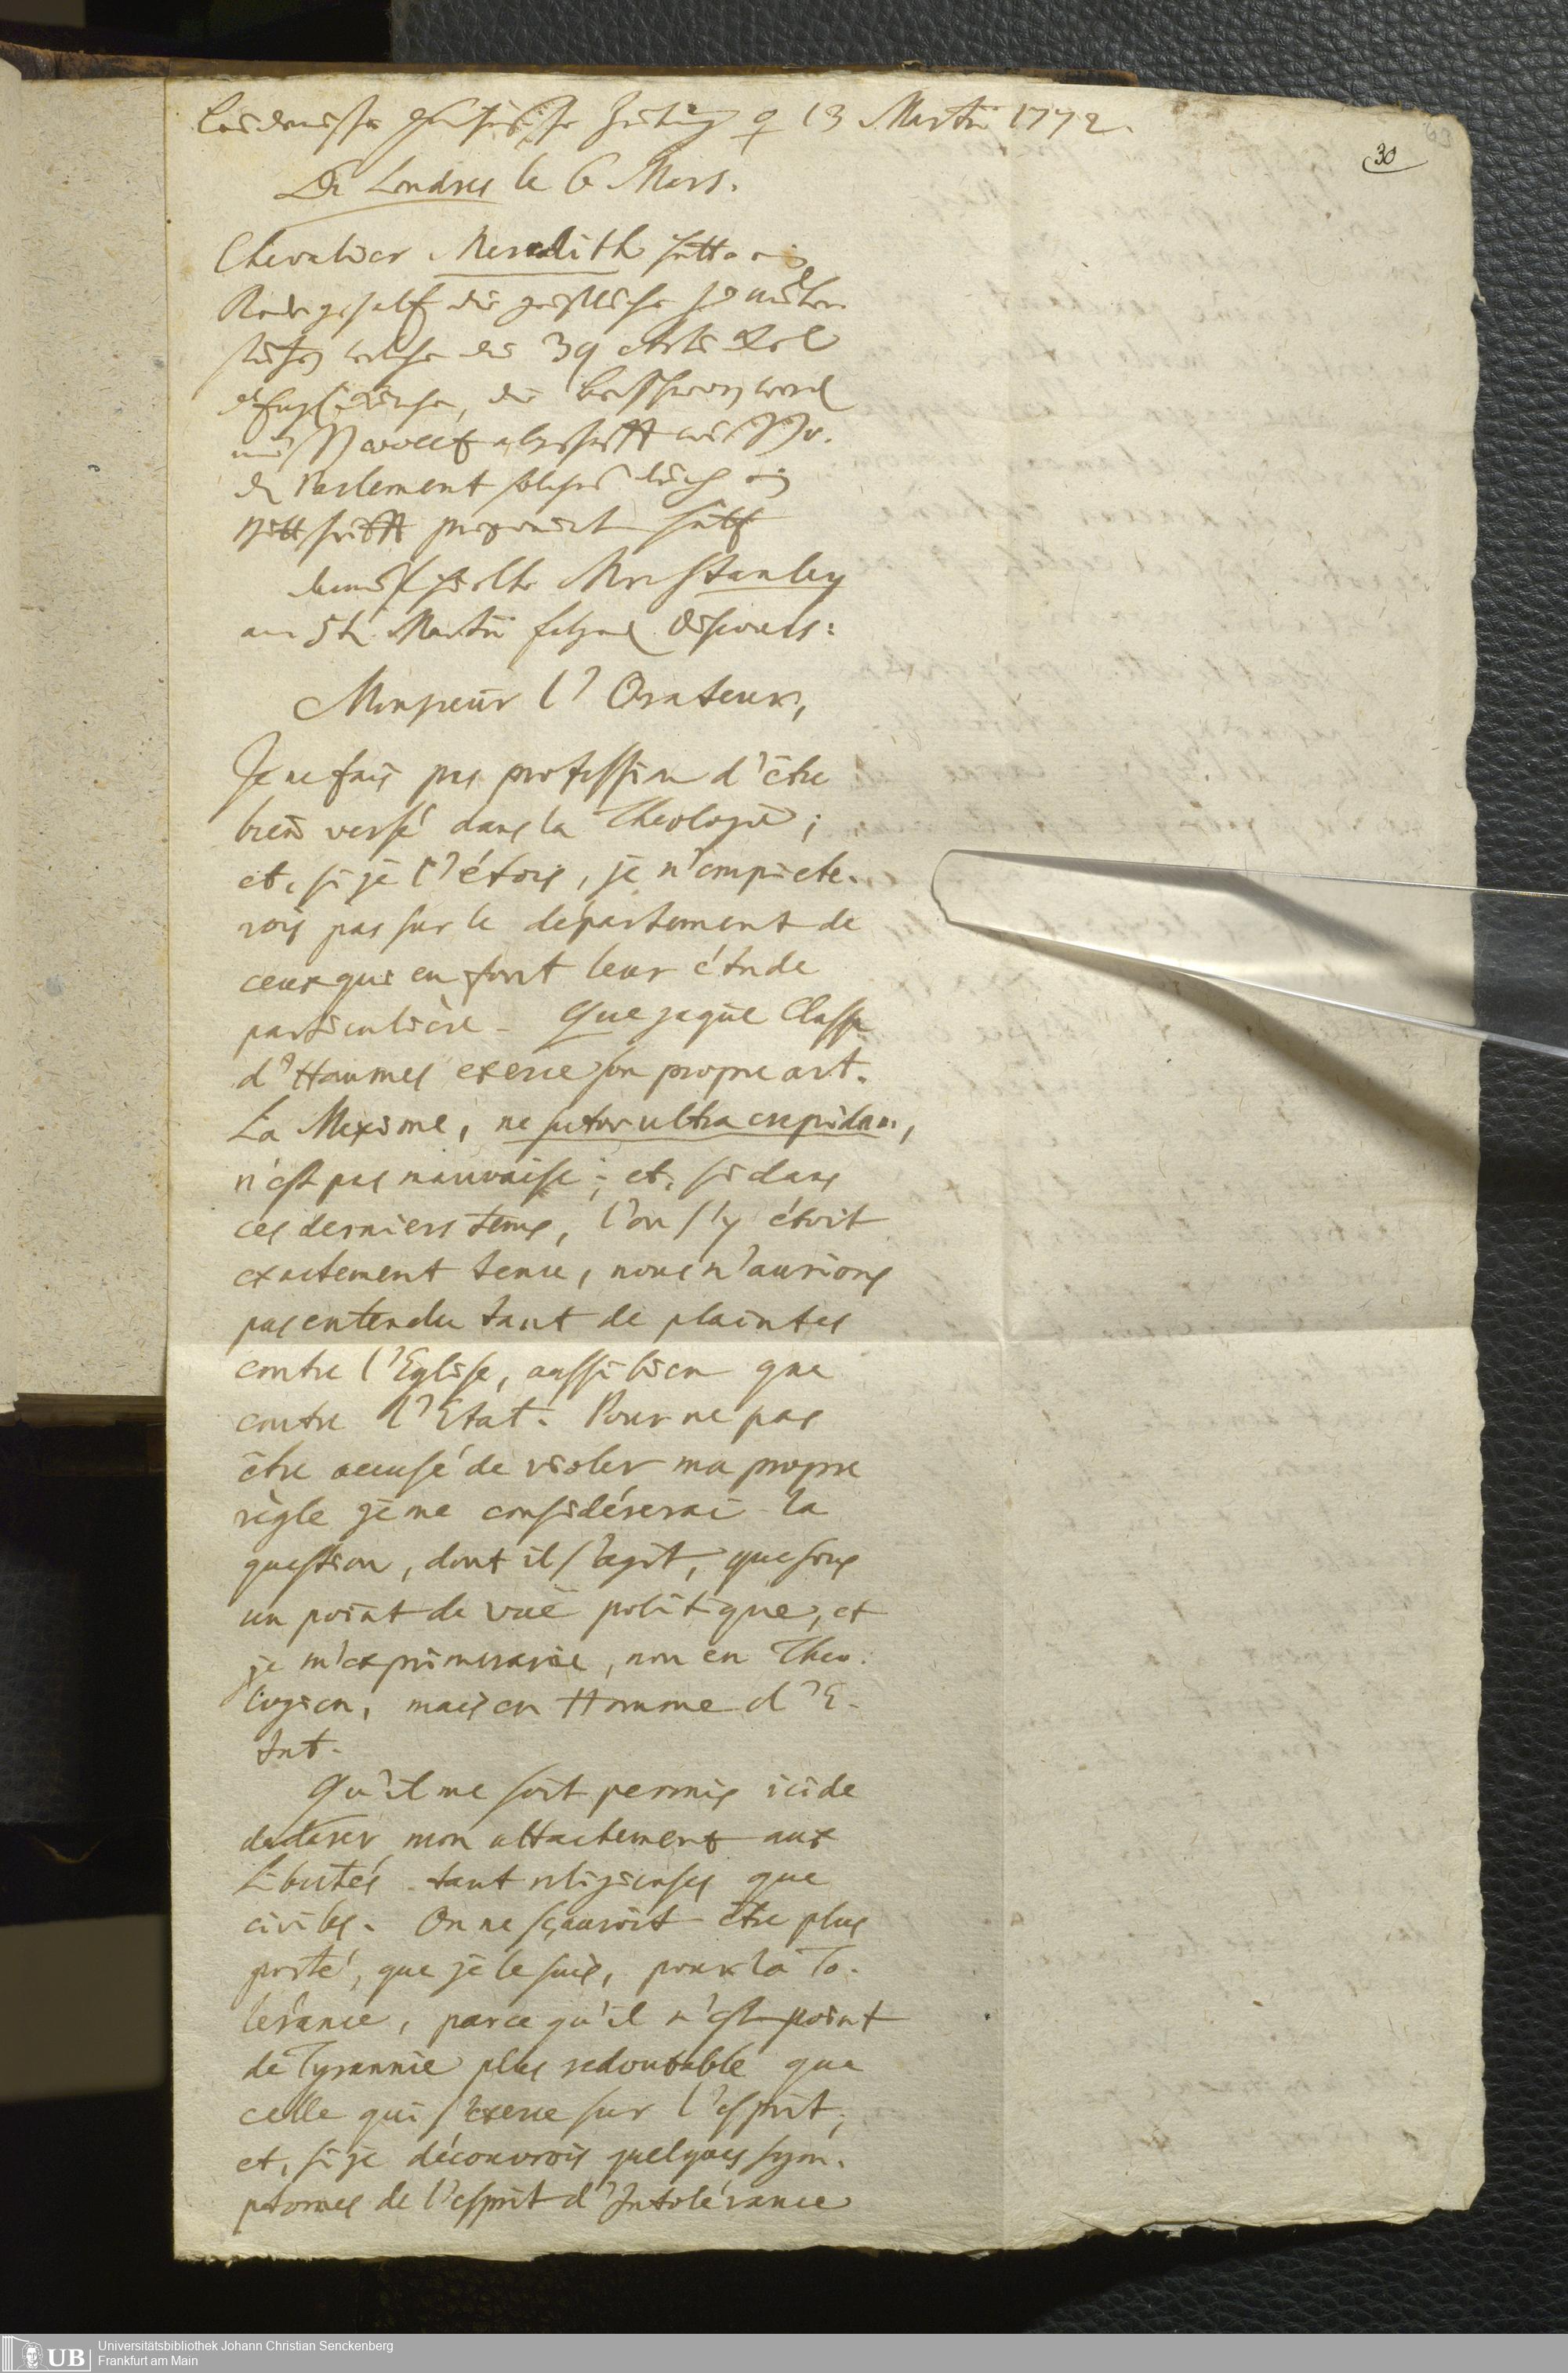 13 Martii 1772.
30
63
De Londres le 6 Mars.
Chevalier Meredith hatte ein
die geistliche
welche die 39 Artikel
die

Parlement solches durch ein
hatt
Mr Stanley
am 5t. Martii folgend discours:
Monsieur l'Orateur,
Je ne fais pas profession d'être
bien versé dans la Theologie;
et, si je l'étois, je n'empiete-
rois pas sur le département de
ceux qui en font leur étude
particulière. Que chaque Classe
d'Hommes exerce son propre art.
La Maxime, ne sutor ultra crepidam,
n'est pas mauvaise; et, si dans
ces derniers tems, l'on s'y étoit
exactement tenu, nous n'aurions
pas entendu tant de plaintes
contre l'Eglise, aussi bien que
contre l'Etat. Pour ne pas
être accusé de violer ma propre
règle je ne considérerai la
question, dont il s'agit, que sous
un point de vuë politique, et
je m'exprimerai, non en Theo-
logien, mais en Homme d'E-
tat.
Qu'il me soit permis ici de
declarer mon attachement aux
Libertés tant religieuses que
civiles. On ne sçauroit être plus
porté, que je le suis, pour la To-
lérance, parce qu'il n'est point
de Tyrannie plus redoutable que
celle qui s'exerce sur l'esprit;
et, si je découvrois quelques sym-
ptomes de l'esprit d'Intolérance
UB
Universitätsbibliothek Johann Christian Senckenberg
Frankfurt am Main